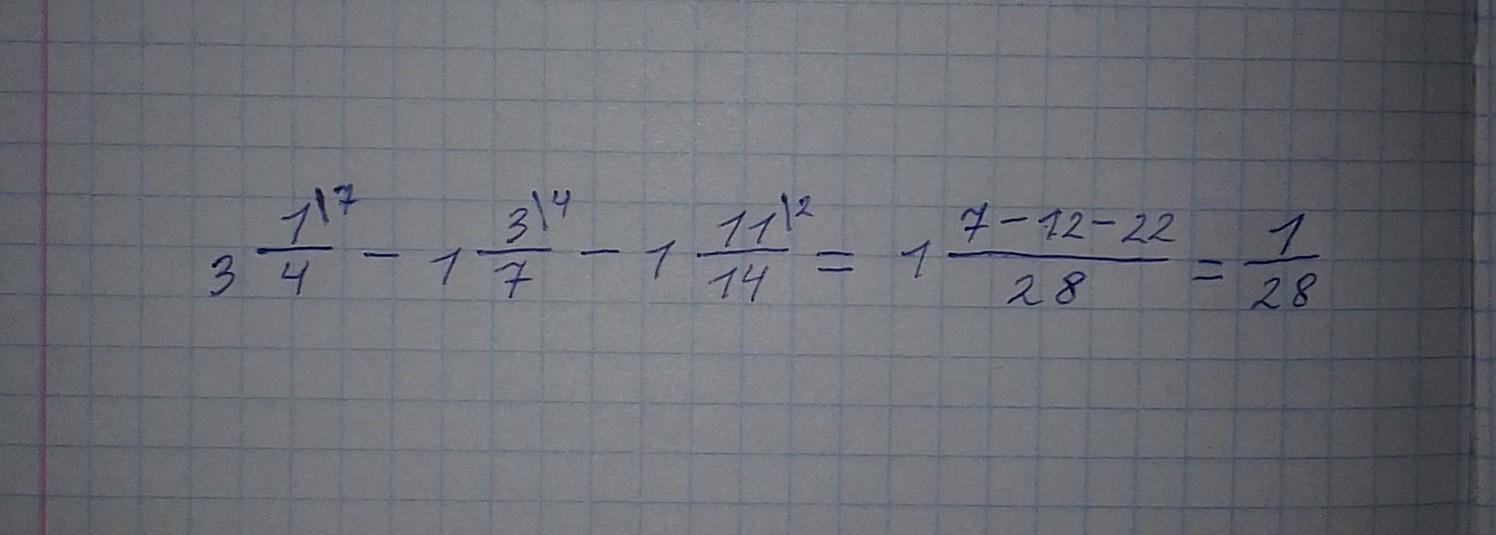 3 1\7/4 - 1 3\4/7 - 1 11\2/14 = 1 7-12-22/28 = 1/28